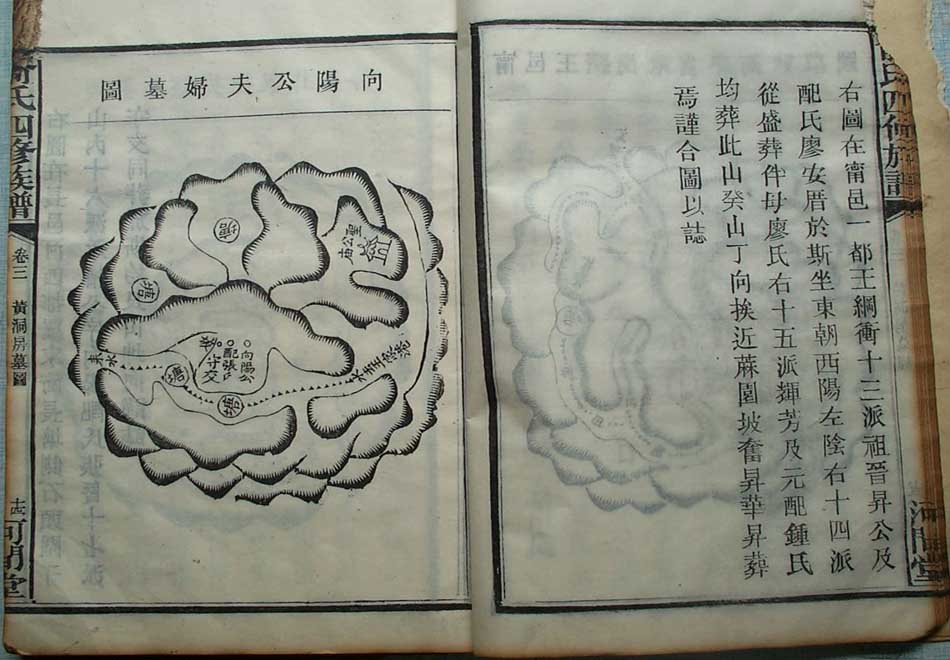 右圖在甯邑一都王綱衝十三派祖晉昇公及
配氏廖安厝於斯坐東朝西陽左陰右十四派
從盛葬件母廖氏右十五派輝芳及元配鍾氏
均葬此山癸山丁向挨近蔴園坡奮昇華昇葬
焉謹合圖以誌
向陽公夫婦墓圖
塘
塘
聖公廟
向陽公
配張氏
交
塘
塘
水
水
來
氏四修族譜
卷三
黃洞房墓圖